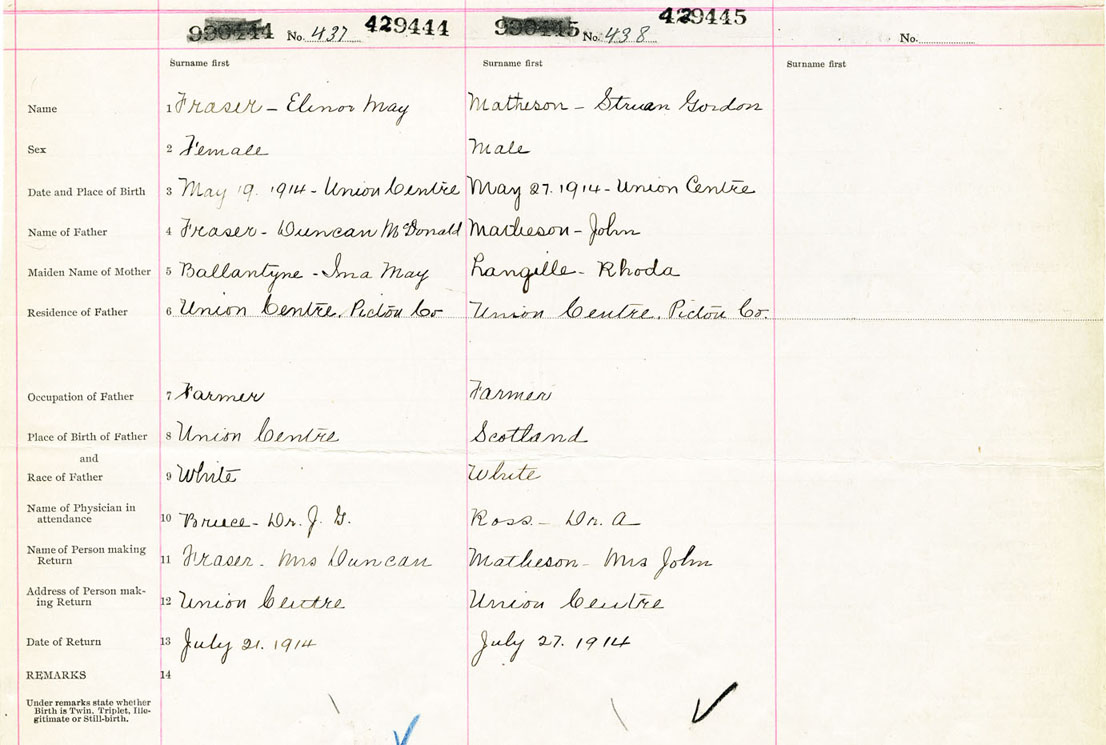 No. 437 429444 No. 438 429445 No.
Surname first Surname first Surname first
Name 1 Fraser - Elinor May Matheson - Struan Gordon
Sex 2 Female Male
Date and Place of Birth 3 May 19. 1914 - Union Centre May 27. 1914 - Union Centre
Name of Father 4 Fraser - Duncan McDonald Matheson - John
Maiden Name of Mother 5 Ballantyne - Ina May Langille - Rhoda
Residence of Father 6 Union Centre. Pictou Co Union Centre. Pictou Co.
Occupation of Father 7 Farmer Farmer
Place of Birth of Father 8 Union Centre Scotland
and
Race of Father 9 White White
Name of Physician in
attendance 10 Bruce - Dr. J. G. Ross - Dr. A
Name of Person making
Return 11 Fraser. Mrs Duncan Matheson - Mrs John
Address of Person mak-
ing Return 12 Union Centre Union Centre
Date of Return 13 July 21. 1914 July 27. 1914
REMARKS 14
Under remarks state whether
Birth is Twin, Triplet, Ille-
gitimate or Still-birth.